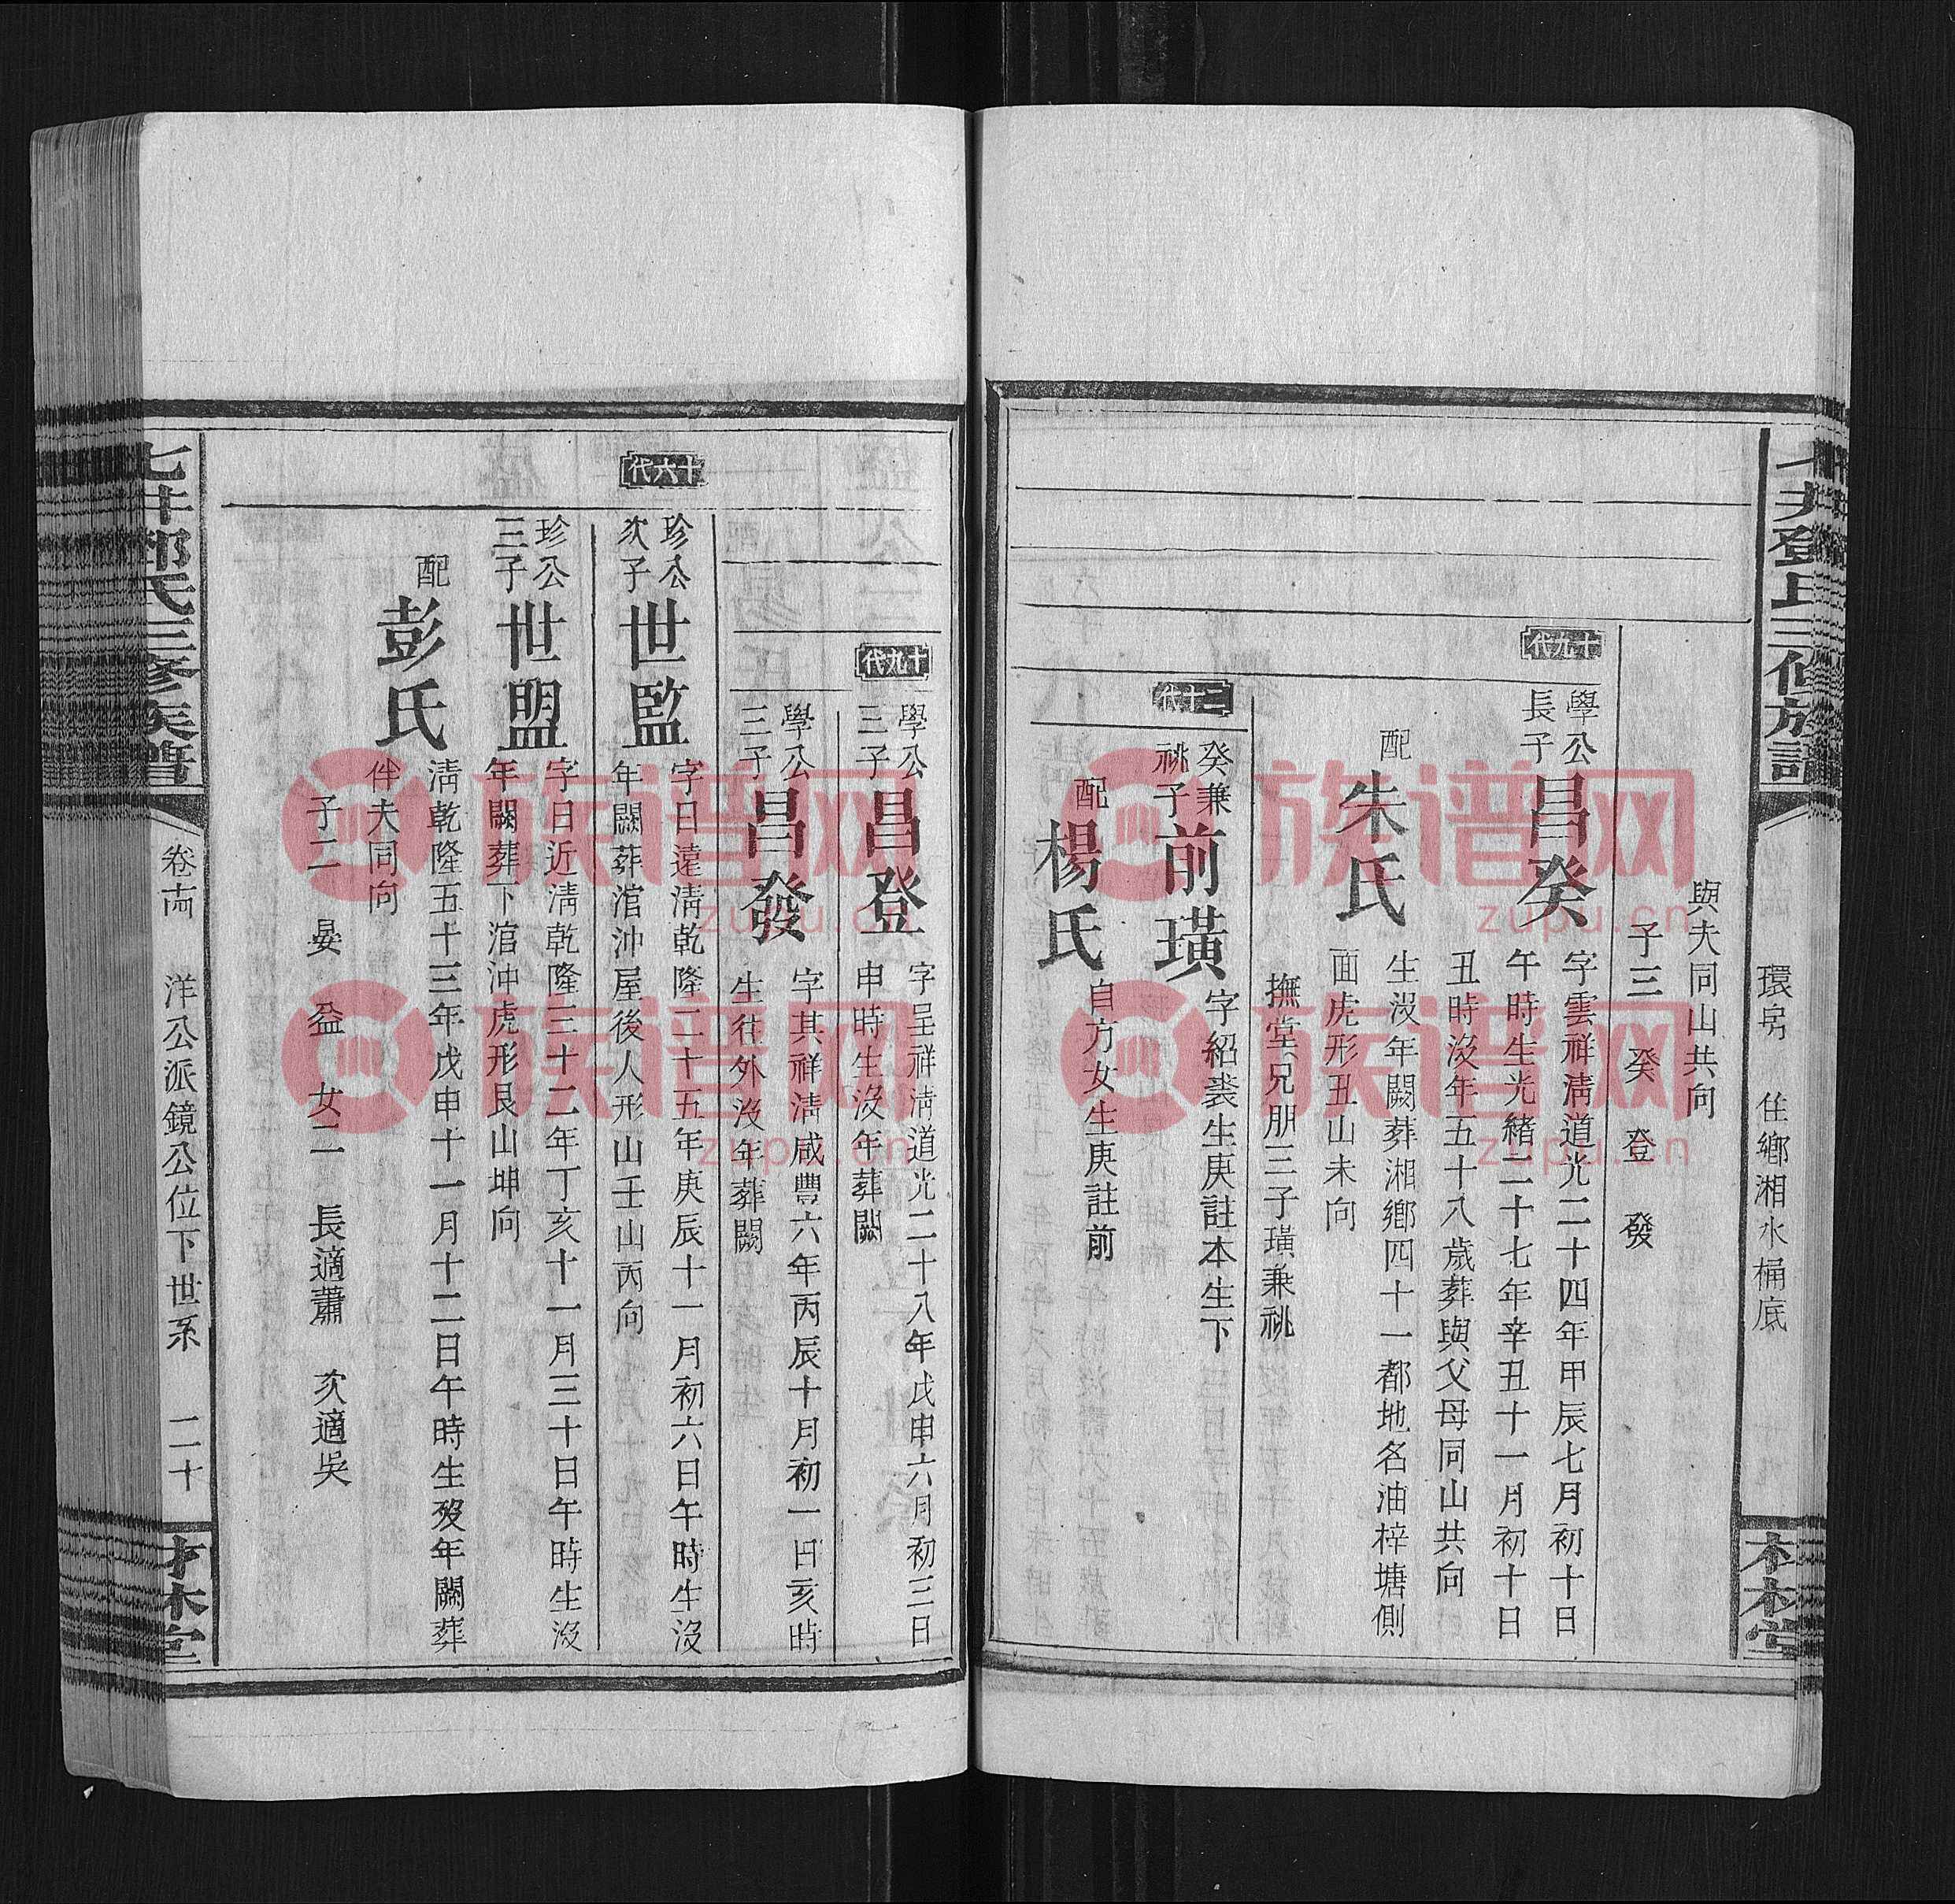 七井鄧氏三修族譜
環房　住鄉湘水桶底
與夫同山共向
子三　癸　登　發
十九代
學公長子 昌癸 字雲祥淸道光二十四年甲辰七月初十日
午時生光緒二十七年辛丑十一月初十日
丑時沒年五十八歲葬與父母同山共向
配 朱氏 生沒年闕葬湘鄉四十一都地名油梓塘側
面虎形丑山未向
撫堂兄朋三子璜兼祧
二十代
癸兼祧子 前璜 字紹裘生庚註本生下
配 楊氏 自方女生庚註前
十九代
學公三子 昌登 字呈祥淸道光二十八年戊申六月初三日
申時生沒年葬闕
學公三子 昌發 字其祥淸咸豐六年丙辰十月初一日亥時
生往外沒年葬闕
十六代
珍公次子 世監 字日遠淸乾隆二十五年庚辰十一月初六日午時生沒
年闕葬涫沖屋後人形山壬山丙向
珍公三子 世盟 字日近淸乾隆三十二年丁亥十一月三十日午時生沒
年闕葬下涫沖虎形艮山坤向
配 彭氏 淸乾隆五十三年戊申十一月十二日午時生歿年闕葬
伴夫同向
子二　晏　益　女二　長適蕭　次適吳
七井鄧氏三修族譜
卷十四　洋公派鏡公位下世系　二十